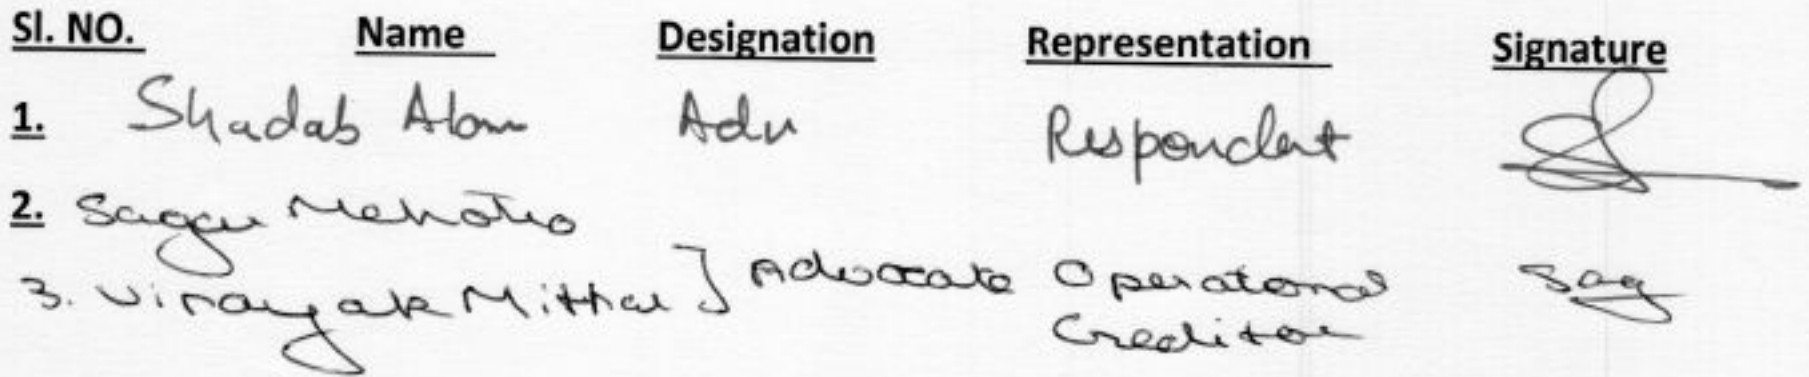 Sl. NO. Name Designation Representation Signature
1. Shadab Alam Adv Respondent
2. Sagar Mehotra
3. Vinayak Mittal ] Advocate Operational
Creditor Sag